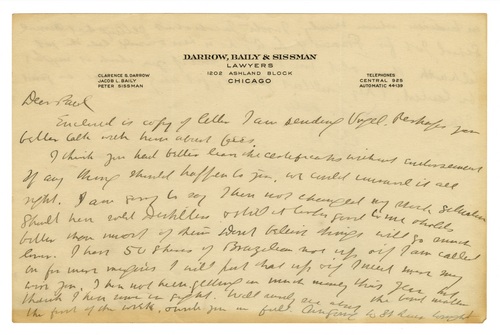 DARROW, BAILY & SISSMAN
LAWYERS
1202 ASHLAND BLOCK
CHICAGO
CLARENCE S. DARROW
JACOB L. BAILY
PETER SISSMAN
TELEPHONES
CENTRAL 925
AUTOMATIC 44-139
Dear Paul
Enclosed is copy of letter I am sending Vogel. Perhaps you
better talk with him about
I think you had better leave the certificates without endorsement
If any thing should happen to you, we could unravel it all
right. I am sorry to say I have not changed my stock
Should have sold Distillers & still it looks good to me &holds
better than most of them Dont believe things will go much
lower. I have 50 shares of Brazilian not up, if I am called
on for more margins I will put that up, if I need more may
wire you. I have not been getting in much money this year but
think I have some in sight. Will
the first of the week,